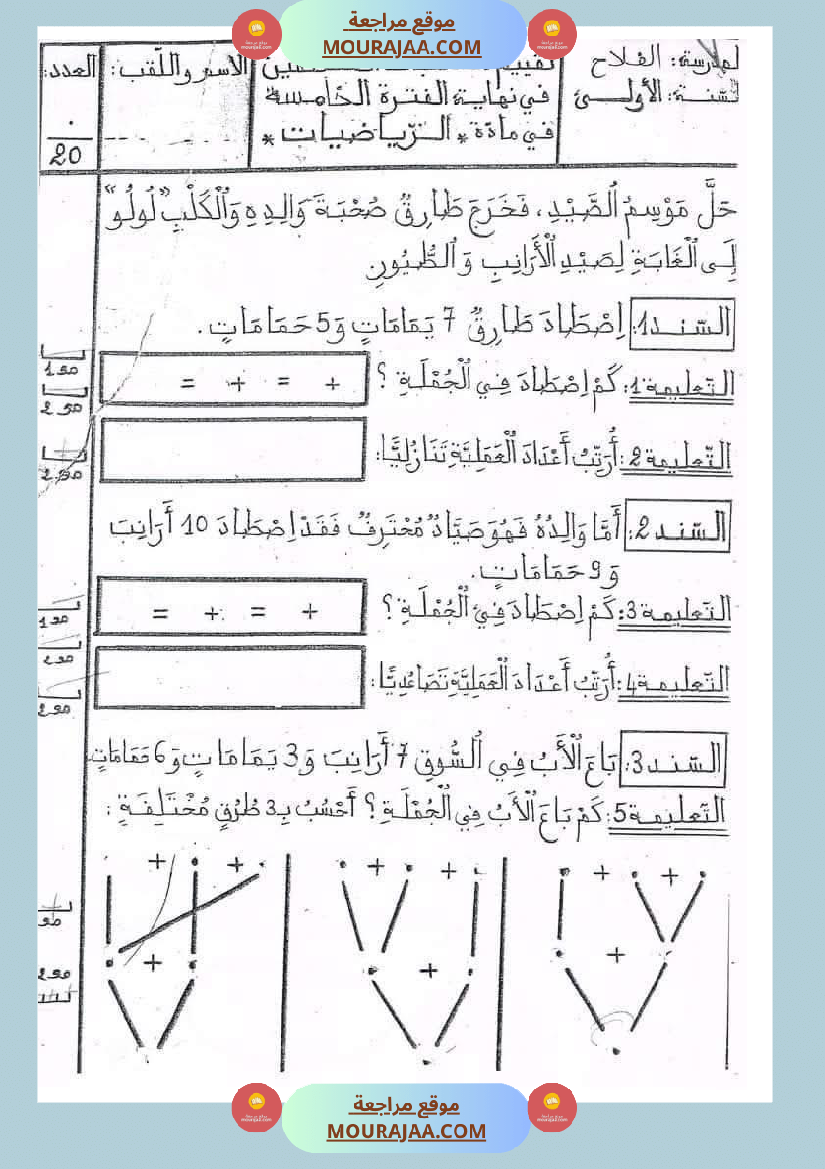 موقع مراجعة
MOURAJAA.COM
المدرسة: الفلاح
السنة: الأولى
في نهاية الفترة الخامسة
في مادة * الرّياضيات *
الاسم واللّقب:
العدد:
20
حَلَّ مَوْسِمُ الصَّيْدِ، فَخَرَجَ طَارِقٌ صُحْبَةَ وَالِدِهِ وَالْكَلْبِ "لُولُو"
إِلَى الْغَابَةِ لِصَيْدِ الْأَرَانِبِ وَالطُّيُورِ
السّند1: اِصْطَادَ طَارِقٌ 7 يَمَامَاتٍ وَ5 حَمَامَاتٍ.
التّعليمة1: كَمْ اِصْطَادَ فِي الْجُمْلَةِ ؟
+ = + =
التّعليمة2: أُرَتِّبُ أَعْدَادَ الْعَمَلِيَّةِ تَنَازُلِيًّا:
السّند2: أَمَّا وَالِدُهُ فَهُوَ صَيَّادٌ مُحْتَرِفٌ فَقَدْ اِصْطَادَ 10 أَرَانِبَ
وَ9 حَمَامَاتٍ.
التّعليمة3: كَمْ اِصْطَادَ فِي الْجُمْلَةِ ؟
+ = + =
التّعليمة4: أُرَتِّبُ أَعْدَادَ الْعَمَلِيَّةِ تَصَاعُدِيًّا:
السّند3: بَاعَ الْأَبُ فِي السُّوقِ 7 أَرَانِبَ وَ3 يَمَامَاتٍ وَ6 حَمَامَاتٍ
التّعليمة5: كَمْ بَاعَ الْأَبُ فِي الْجُمْلَةِ ؟ أَحْسُبُ بِـ3 طُرُقٍ مُخْتَلِفَةٍ :
+ + + + + +
+ + +
موقع مراجعة
MOURAJAA.COM